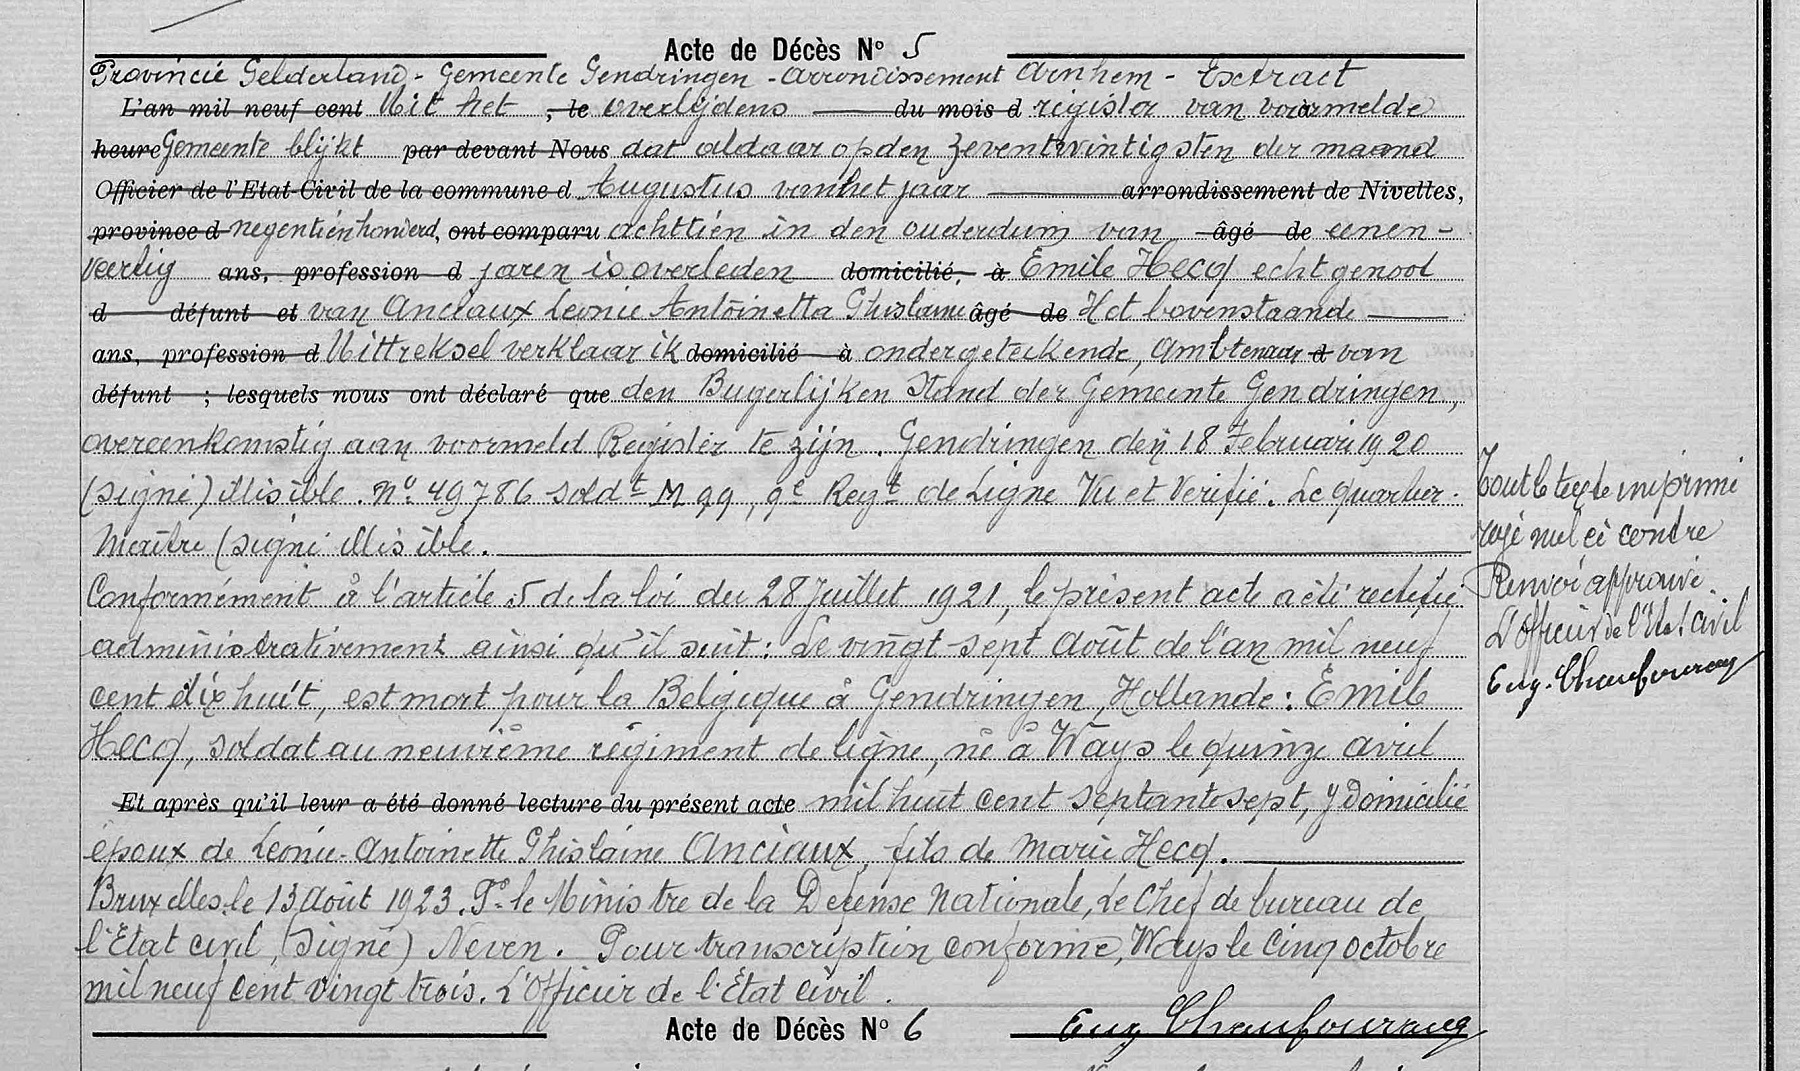 Acte de Décès N° 5
Provincie Gelderland - Gemeente Gendringen - Arrondissement Arnhem - Extract
L'an mil neuf cent Uit het , le overlijdens du mois d register van voormelde
heure Gemeente blijkt par devant Nous dat aldaar op den zeventwintigsten der maand
Officier de l'Etat-Civil de la commune d Augustus van het jaar arrondissement de Nivelles,
province d negentienhonderd, ont comparu achttien in den ouderdum van âgé de eenen-
veertig ans, profession d jaren is overleden domicilié, à Emile Hecq echtgenoot
d défunt et van Anciaux Leonie Antoinetta Ghislaine âgé de Het bovenstaande
ans, profession d Uittreksel verklaar ik domicilié à ondergeteekende, Ambtenaar d van
défunt ; lesquels nous ont déclaré que den Bugerlijken Stand der Gemeente Gendringen,
overeenkomstig aan voormeld Register te zijn. Gendringen den 18 Februari 1920
(signé) illisible. N° 49786 soldt M 99, 9e Regt de Ligne Vu et Vérifié. Le quartier-
Maître (signé illisible.
Conformément à l'article 5 de la loi du 28 Juillet 1921, le présent acte a été rectifié
administrativement ainsi qu'il suit : Le vingt-sept Août de l'an mil neuf
cent dix huit, est mort pour la Belgique à Gendringen, Hollande : Emile
Hecq, soldat au neuvième régiment de ligne, né à Ways le quinze avril
Et après qu'il leur a été donné lecture du présent acte mil huit cent septante sept, y domicilié
époux de Leonie-Antoinette Ghislaine Anciaux, fils de Marie Hecq.
Bruxelles le 13 Août 1923. Pr le Ministre de la Défense Nationale, Le Chef de bureau de
l'Etat civil, (signé) Neven. Pour transcription conforme, Ways le cinq octobre
mil neuf cent vingt trois. L'Officier de l'Etat civil.
Tout le texte imprimé
rayé nul ci contre
Renvoi approuvé.
L'Officier de l'Etat Civil
Eug.
Acte de Décès N° 6
Eug